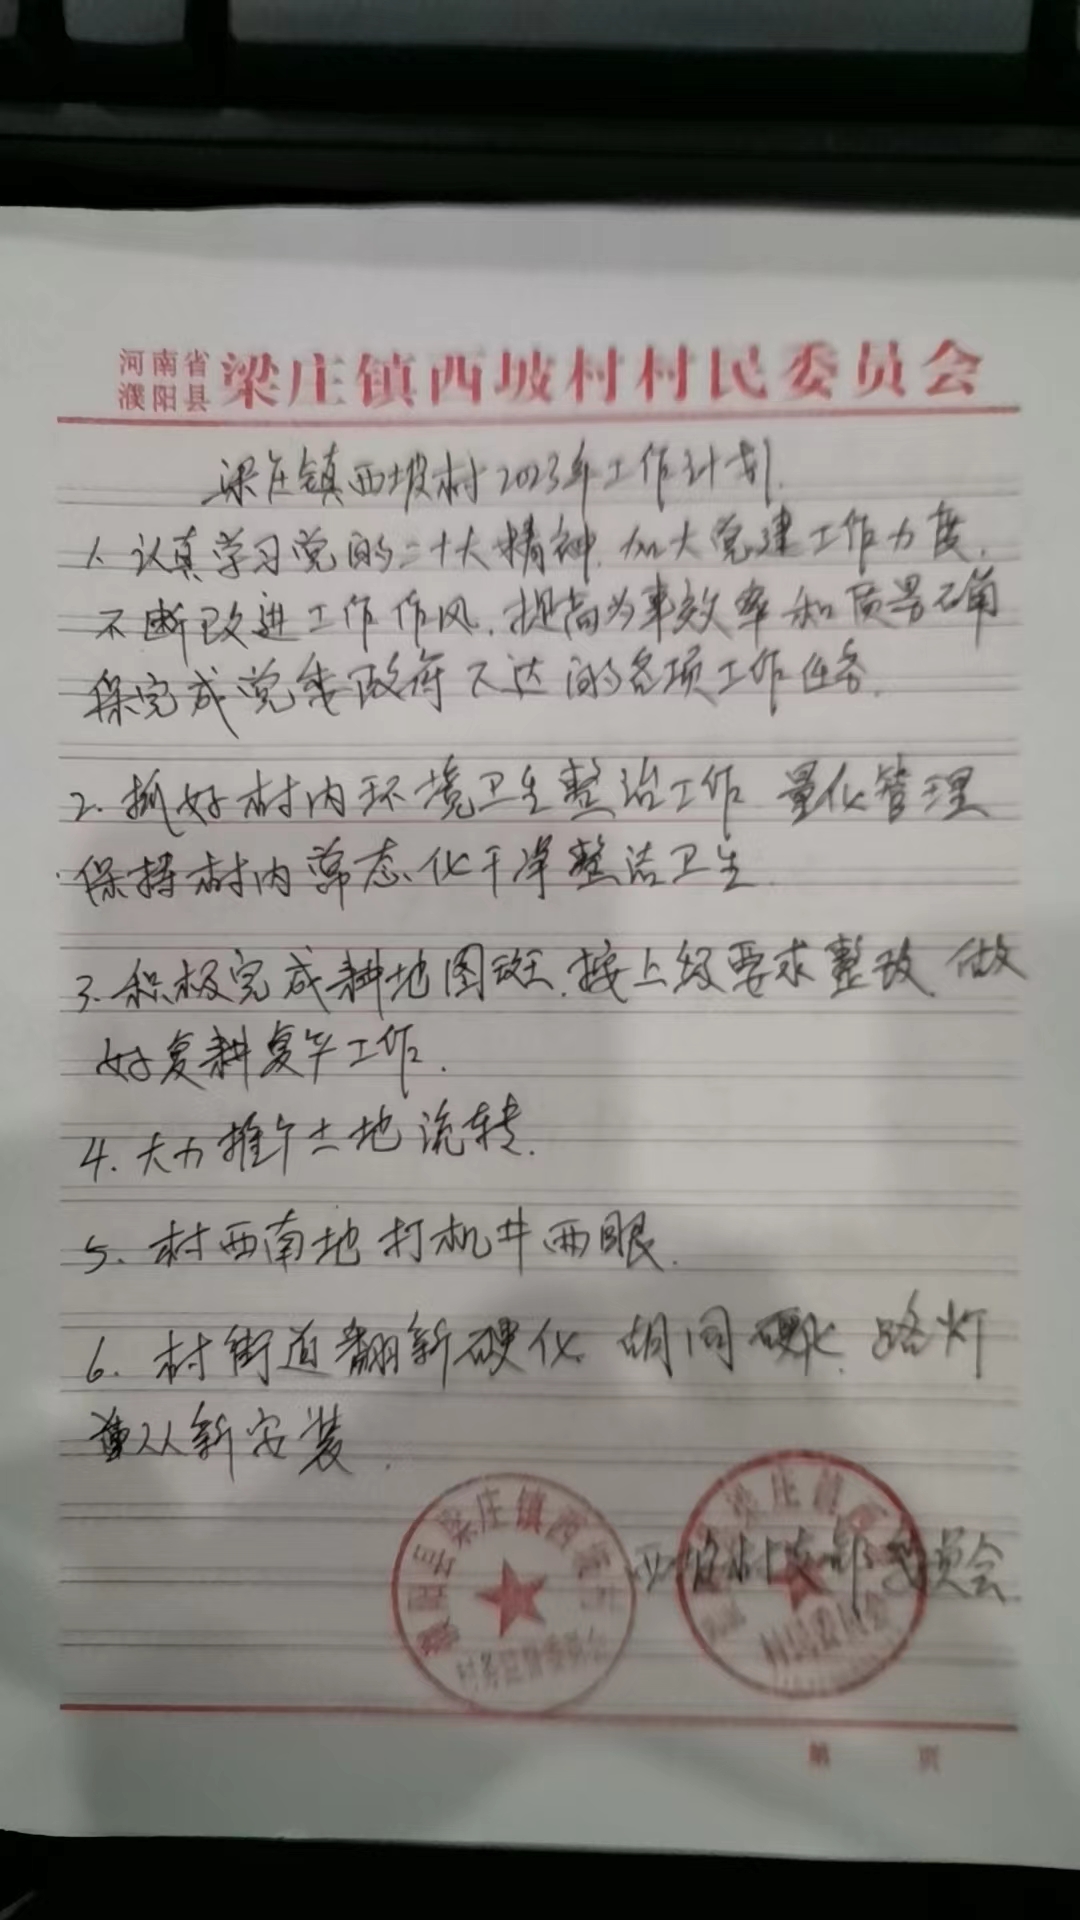 河南省
濮阳县
梁庄镇西坡村村民委员会
梁庄镇西坡村2023年工作计划
1、认真学习党的二十大精神.加大党建工作力度.
不断改进工作作风.提高办事效率和质量确
保完成党委政府下达的各项工作任务.
2.抓好村内环境卫生整治工作 量化管理
保持村内常态化干净整洁卫生
3.积极完成耕地图斑.按上级要求整改.做
好复耕复午工作.
4.大力推个土地流转.
5、村西南地打机井两眼.
6.村街道翻新硬化.胡同硬化.路灯
重从新安装.
西坡村支部 委员会
濮阳县梁庄镇西坡村
村务监督委员会
梁庄镇西
村民委员会
第 页